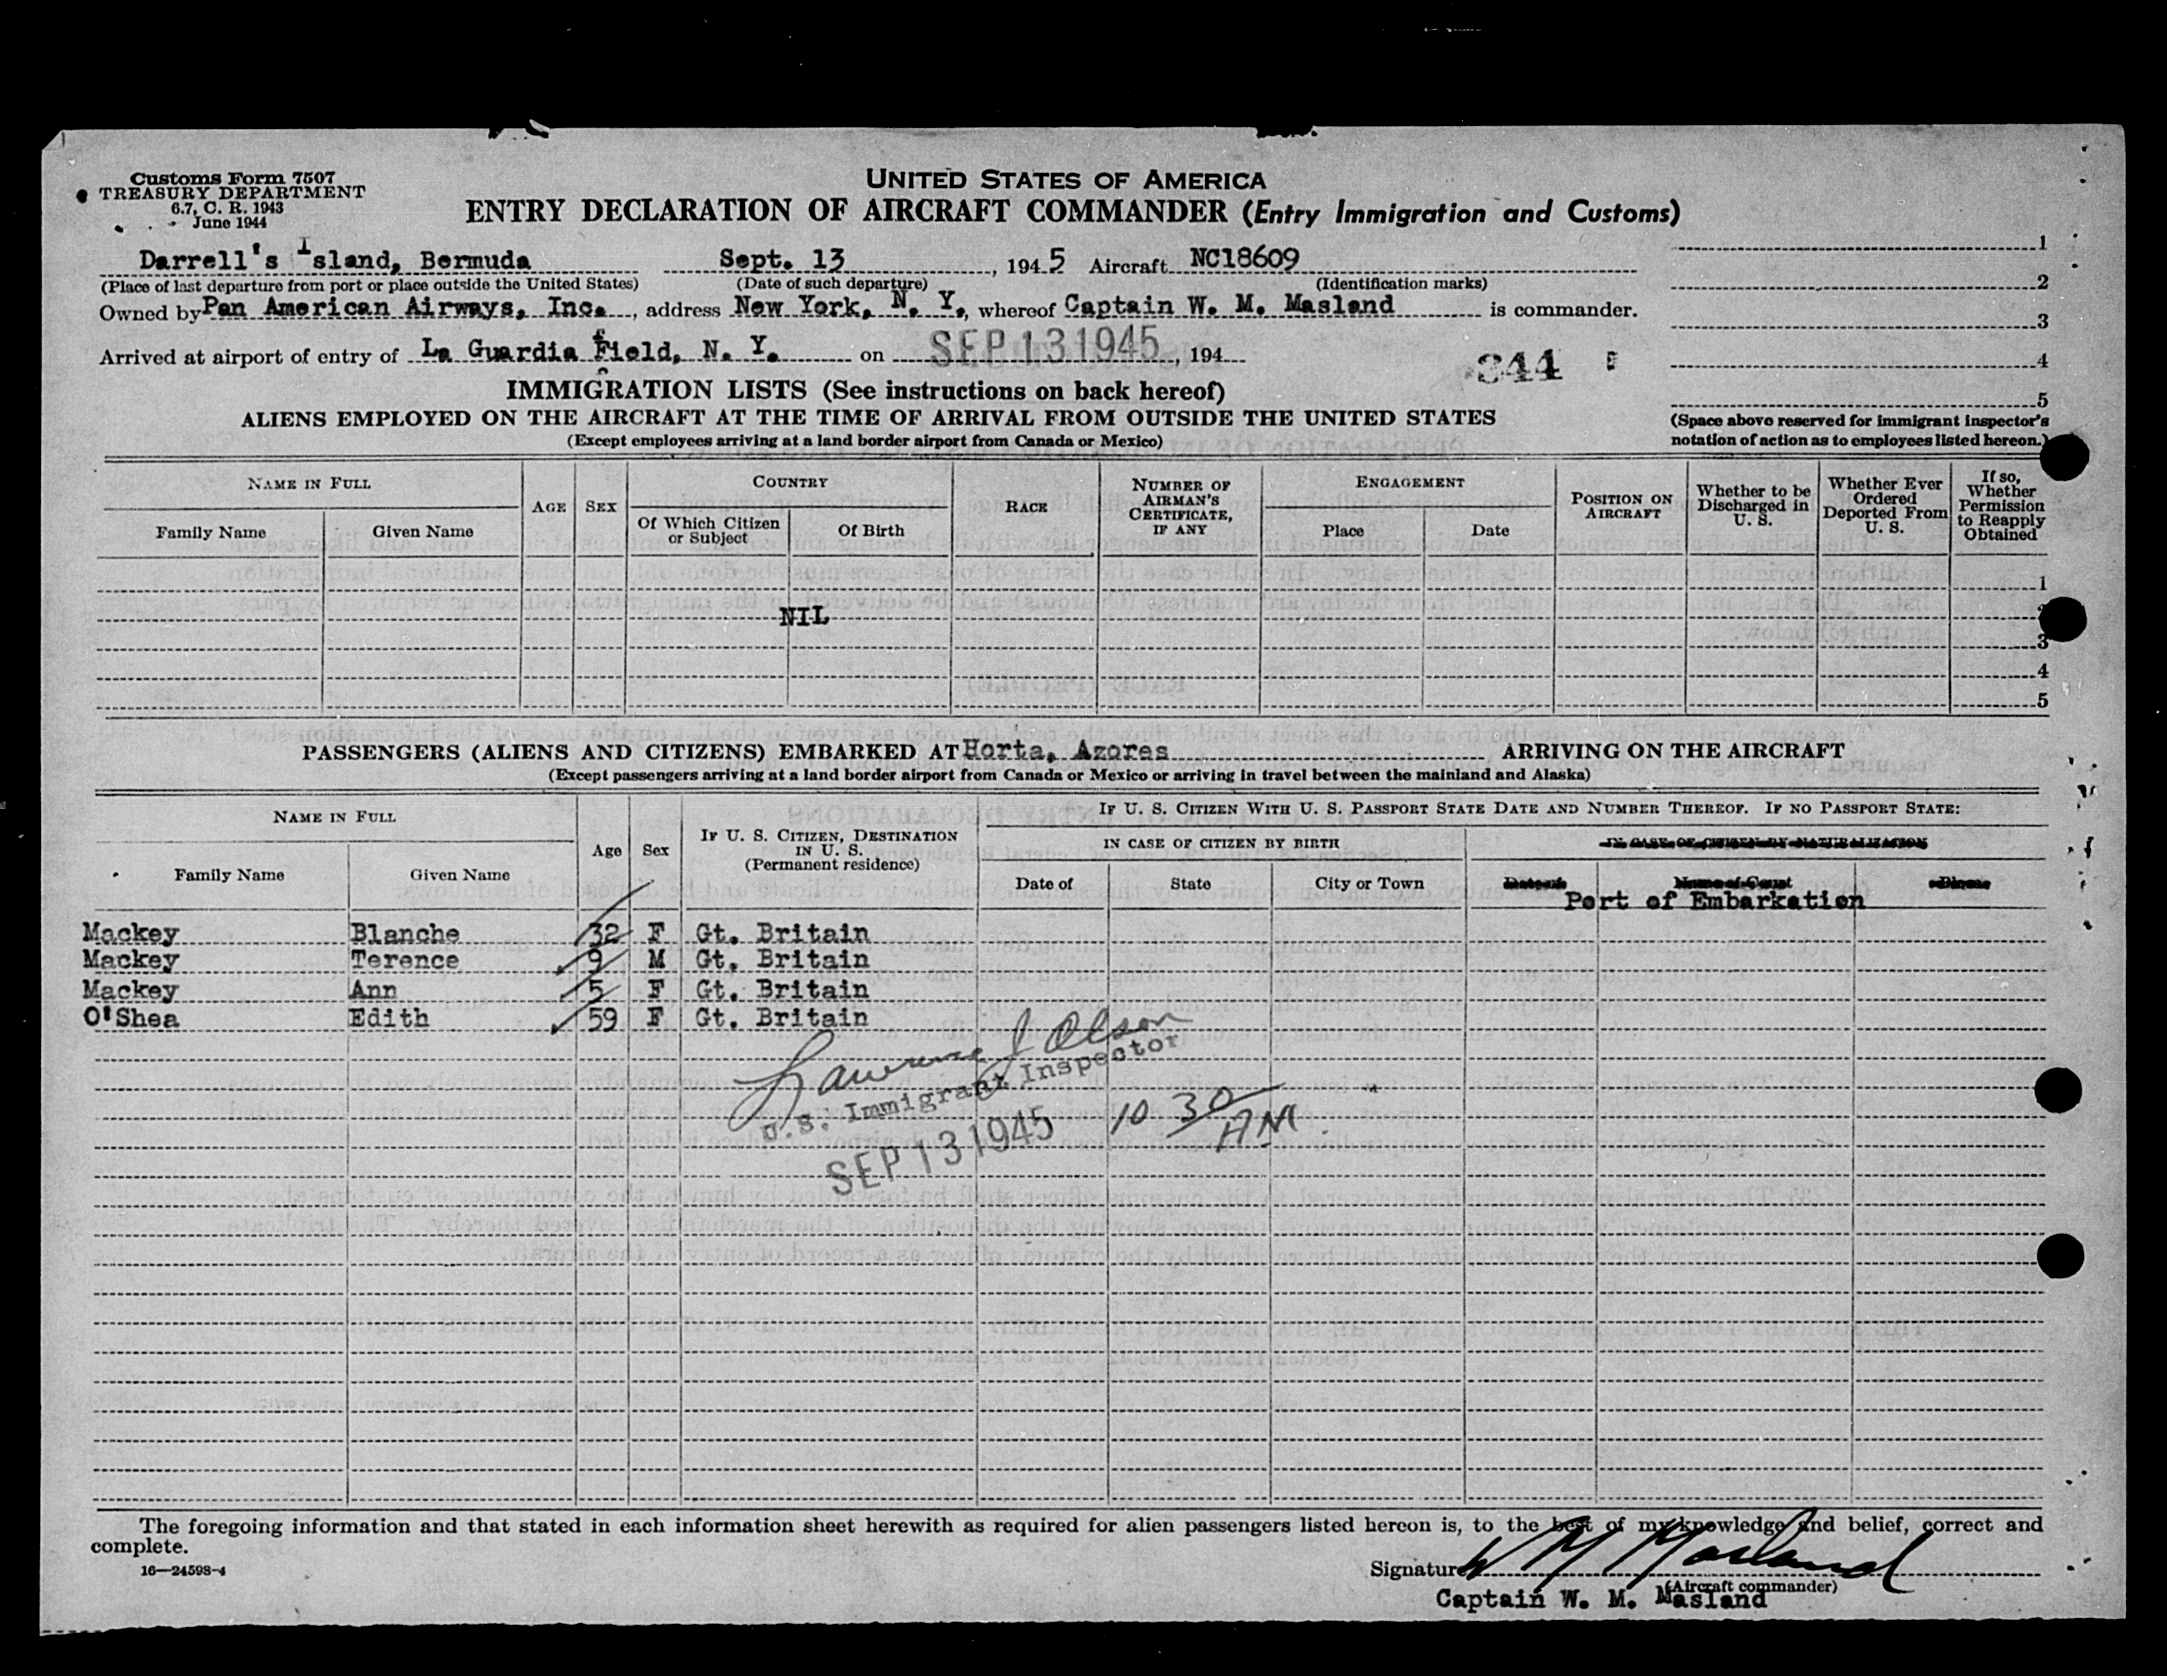 Customs Form 7507
TREASURY DEPARTMENT
6.7, C. R. 1943
June 1944
UNITED STATES OF AMERICA
ENTRY DECLARATION OF AIRCRAFT COMMANDER (Entry Immigration and Customs)
Darrell's Island, Bermuda Sept. 13, 1945 Aircraft NC18609
(Place of last departure from port or place outside the United States) (Date of such departure) (Identification marks)
Owned by Pan American Airways, Inc., address New York, N. Y., whereof Captain W. M. Masland is commander.
Arrived at airport of entry of La Guardia Field, N. Y. on SEP 13 1945, 194
344
1
2
3
4
5
(Space above reserved for immigrant inspector's
notation of action as to employees listed hereon.)
IMMIGRATION LISTS (See instructions on back hereof)
ALIENS EMPLOYED ON THE AIRCRAFT AT THE TIME OF ARRIVAL FROM OUTSIDE THE UNITED STATES
(Except employees arriving at a land border airport from Canada or Mexico)
NAME IN FULL
Family Name Given Name
AGE SEX
COUNTRY
Of Which Citizen
or Subject
Of Birth
RACE
NUMBER OF
AIRMAN'S
CERTIFICATE,
IF ANY
ENGAGEMENT
Place Date
POSITION ON
AIRCRAFT
Whether to be
Discharged in
U. S.
Whether Ever
Ordered
Deported From
U. S.
If so,
Whether
Permission
to Reapply
Obtained
1
NIL
3
4
5
PASSENGERS (ALIENS AND CITIZENS) EMBARKED AT Horta, Azores ARRIVING ON THE AIRCRAFT
(Except passengers arriving at a land border airport from Canada or Mexico or arriving in travel between the mainland and Alaska)
NAME IN FULL
Family Name Given Name
Age Sex
IF U. S. CITIZEN, DESTINATION
IN U. S.
(Permanent residence)
IF U. S. CITIZEN WITH U. S. PASSPORT STATE DATE AND NUMBER THEREOF. IF NO PASSPORT STATE:
IN CASE OF CITIZEN BY BIRTH
IN CASE OF CITIZEN BY NATURALIZATION
Date of State City or Town
Name of Court Place
Port of Embarkation
Mackey Blanche 32 F Gt. Britain
Mackey Terence 9 M Gt. Britain
Mackey Ann 5 F Gt. Britain
O'Shea Edith 59 F Gt. Britain
Lawrence J Olson
U.S. Immigrant Inspector
SEP 13 1945
10 30 AM
The foregoing information and that stated in each information sheet herewith as required for alien passengers listed hereon is, to the best of my knowledge and belief, correct and
complete.
16—24598-4
Signature W M Masland
(Aircraft commander)
Captain W. M. Masland